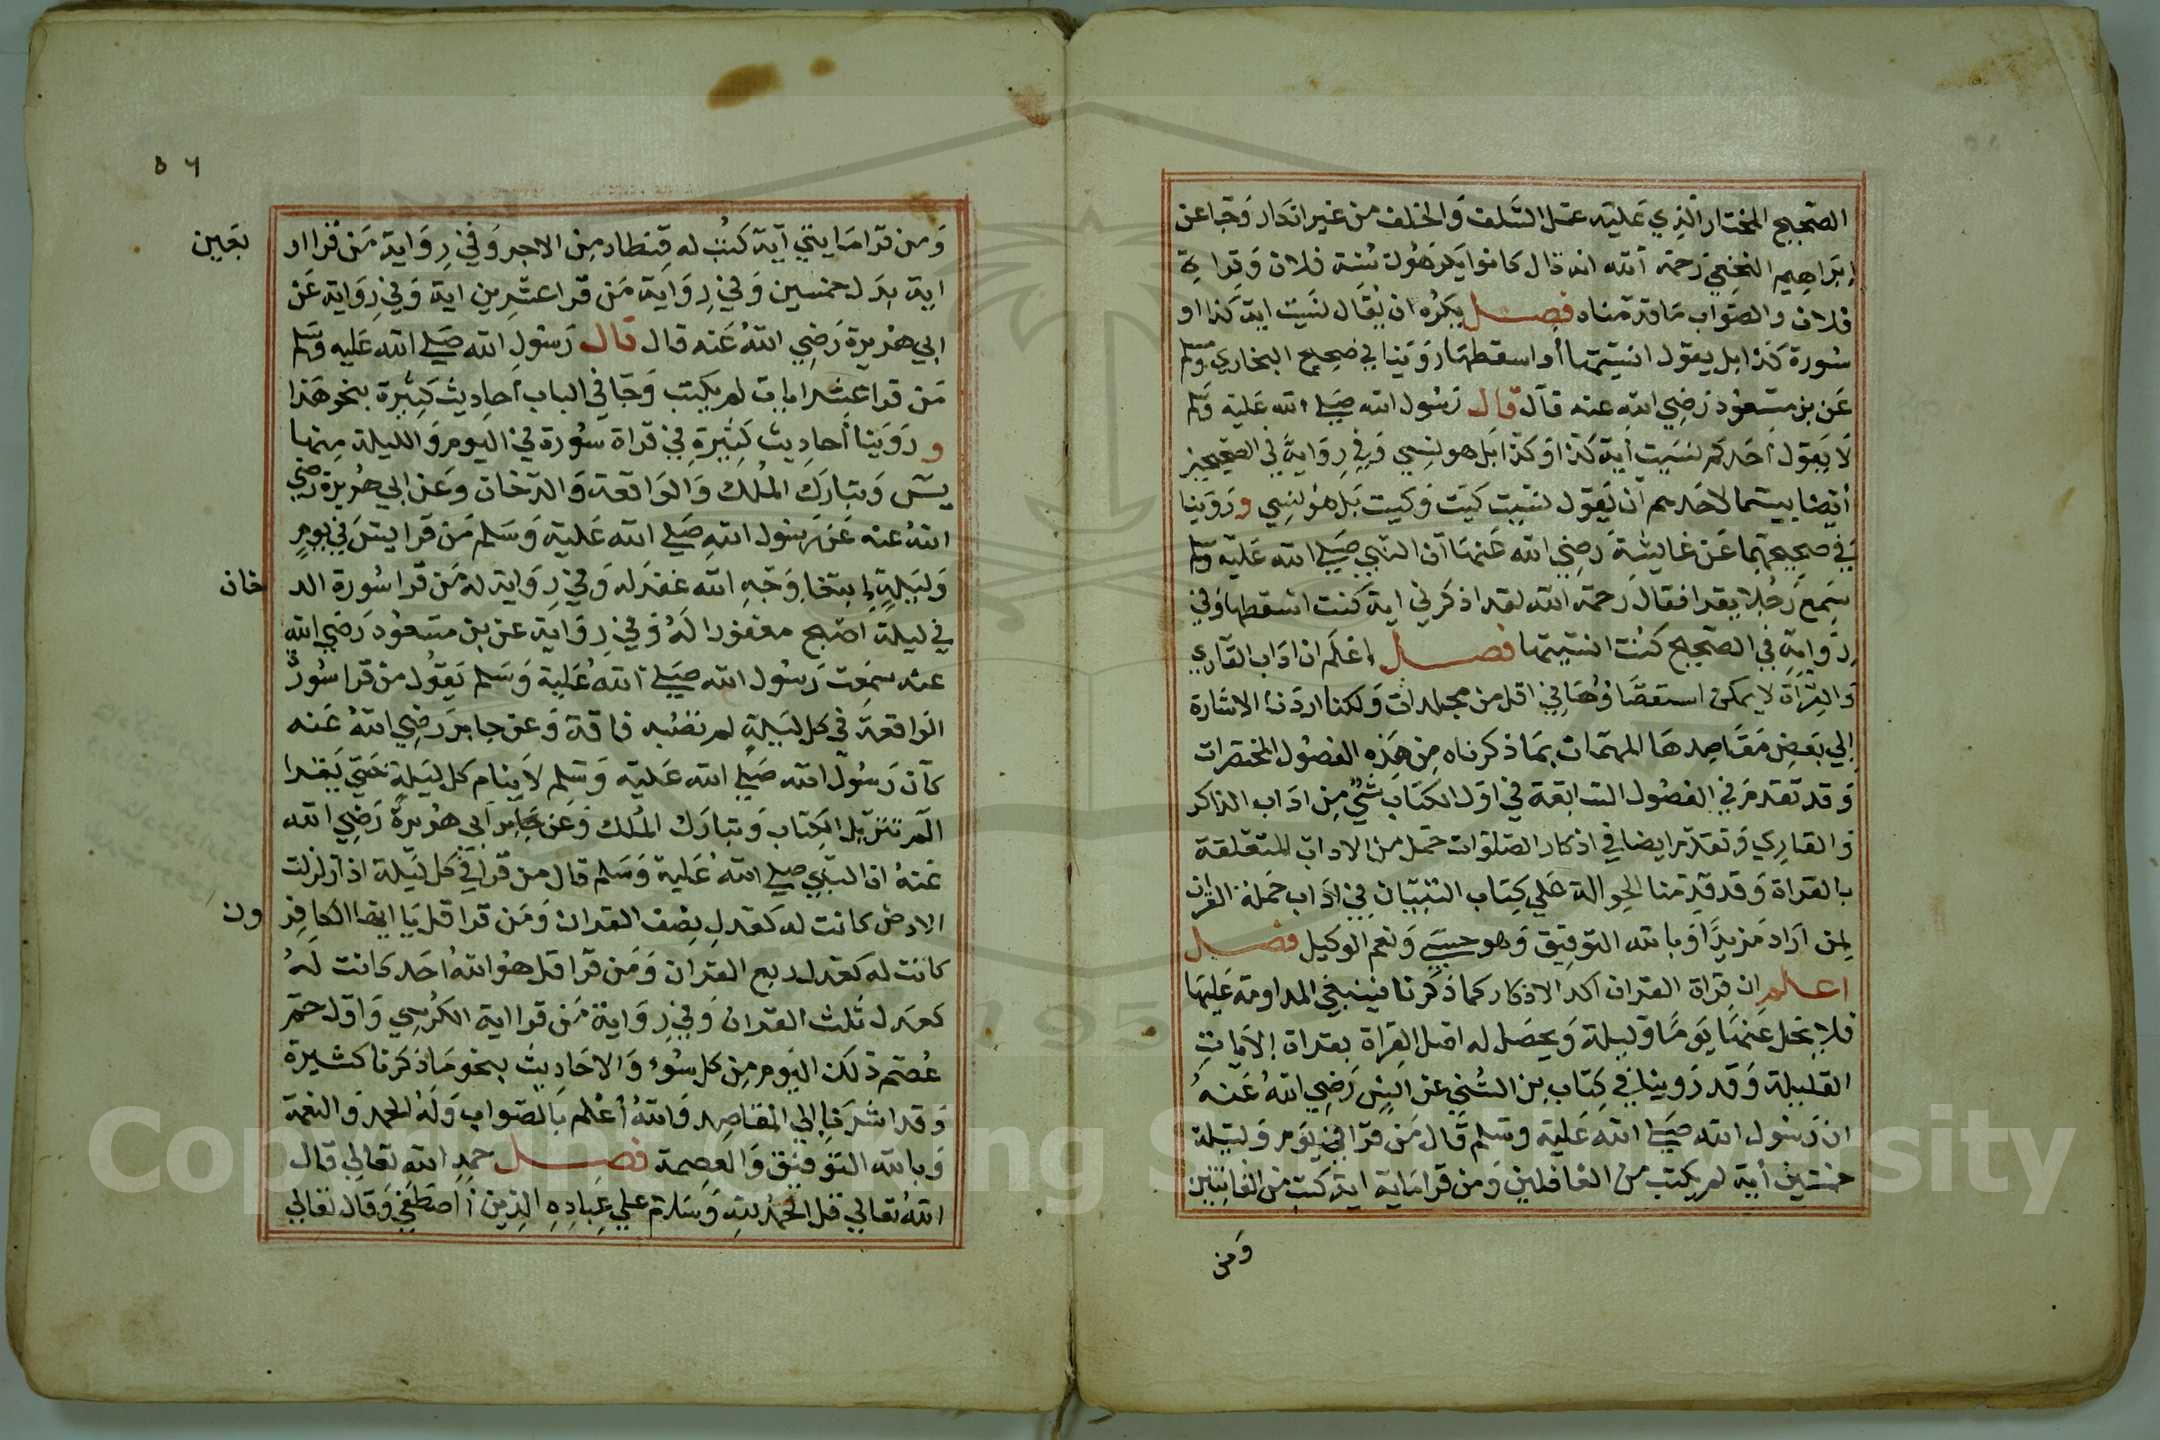 الصحيح المختار الذي عليه عمل السلف والخلف من غير انكار وجا عن
ابراهيم النخعي رحمه الله انه قال كانوا يكرهون سنة فلان وقراءة
فلان والصواب ما قدمناه فصل يكره ان يقال نسيت اية كذا او
سورة كذا بل يقول انسيتها أو اسقطتها روينا في صحيح البخاري ومسلم
عن بن مسعود رضي الله عنه قال قال رسول الله صلي الله عليه وسلم
لا يقول أحدكم نسيت أية كذا وكذا بل هو نسي وفي رواية في الصحيحين
أيضا بيسما لاحدهم أن يقول نسيت كيت وكيت بل هو نسي وروينا
في صحيحهما عن عايشة رضي الله عنها أن النبي صلي الله عليه وسلم
سمع رجلا يقرا فقال رحمه الله لقد اذكرني اية كنت اسقطها وفي
رواية في الصحيح كنت انسيتها فصل اعلم ان اداب القاري
والقرأة لا يمكن استقصاوها في اقل من مجلدات ولكنا اردنا الاشارة
الي بعض مقاصدها المهمات بما ذكرناه من هذه الفصول المختصرات
وقد تقدم في الفصول السابقة في اول الكتاب شي من اداب الذاكر
والقاري وتقدم ايضا في اذكار الصلوات جمل من الاداب المتعلقة
بالقراة وقد قدمنا الحوالة علي كتاب التبيان في اداب حملة القران
لمن اراد مزيدا وبالله التوفيق وهو حسبي ونعم الوكيل فصل
اعلم ان قراة القران اكد الاذكار كما ذكرنا فينبغي المداومة عليها
فلا يخل عنها يوما وليلة ويحصل له اصل القراة بقراة الايات
القليلة وقد روينا في كتاب بن السني عن انس رضي الله عنه
ان رسول الله صلي الله عليه وسلم قال من قرا في يوم وليلة
خمسين أية لم يكتب من الغافلين ومن قرا ماية اية كتب من القانتين
ومن
٥٦
ومن قرا مايتي آية كتب له قنطار من الاجر وفي رواية من قرا ار بعين
اية بدل خمسين وفي رواية من قرا عشرين اية وفي رواية عن
ابي هريرة رضي الله عنه قال قال رسول الله صلي الله عليه وسلم
من قرا عشر ايات لم يكتب وجا في الباب أحاديث كثيرة بنحو هذا
وروينا أحاديث كثيرة في قراة سورة في اليوم والليلة منها
يس وتبارك الملك والواقعة والدخان وعن ابي هريرة رضي
الله عنه عن رسول الله صلي الله عليه وسلم من قرا يس في يوم
وليلة ابتغا وجه الله غفر له وفي رواية له من قرا سورة الد خان
في ليلة اصبح مغفورا له وفي رواية عن بن مسعود رضي الله
عنه سمعت رسول الله صلي الله عليه وسلم يقول من قرا سورة
الواقعة في كل ليلة لم تصبه فاقة وعن جابر رضي الله عنه
كان رسول الله صلي الله عليه وسلم لا ينام كل ليلة حتي يقرا
الم تنزيل الكتاب وتبارك الملك وعن جابر ابي هريرة رضي الله
عنه ان النبي صلي الله عليه وسلم قال من قرا في كل ليلة اذا زلزلت
الارض كانت له كعدل نصف القران ومن قرا قل يا ايها الكافر ون
كانت له كعدل ربع القران ومن قرا قل هو الله احد كانت له
كعدل ثلث القران وفي رواية من قرا اية الكرسي واول حم
عصم ذلك اليوم من كل سوء والاحاديث بنحو ما ذكرنا كثيرة
وقد اشرنا الي المقاصد والله أعلم بالصواب وله الحمد والنعمة
وبالله التوفيق والعصمة فصل حمد الله تعالي قال
الله تعالي قل الحمد لله وسلام علي عباده الذين اصطفي وقال تعالي